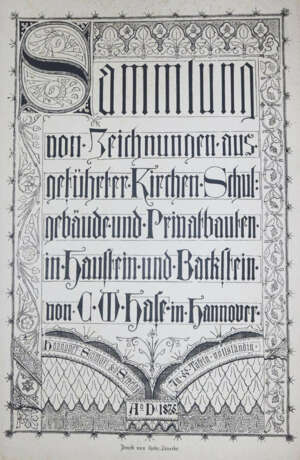 Sammlung
von·Zeichnungen·aus·
geführter·Kirchen·Schul·
gebäude·und·Privatbauten·
in·Haustein·und·Backstein·
von·C·W·Hase·in·Hannover·
Hannover
In Heften vollständig
A·D·1875
Druck von